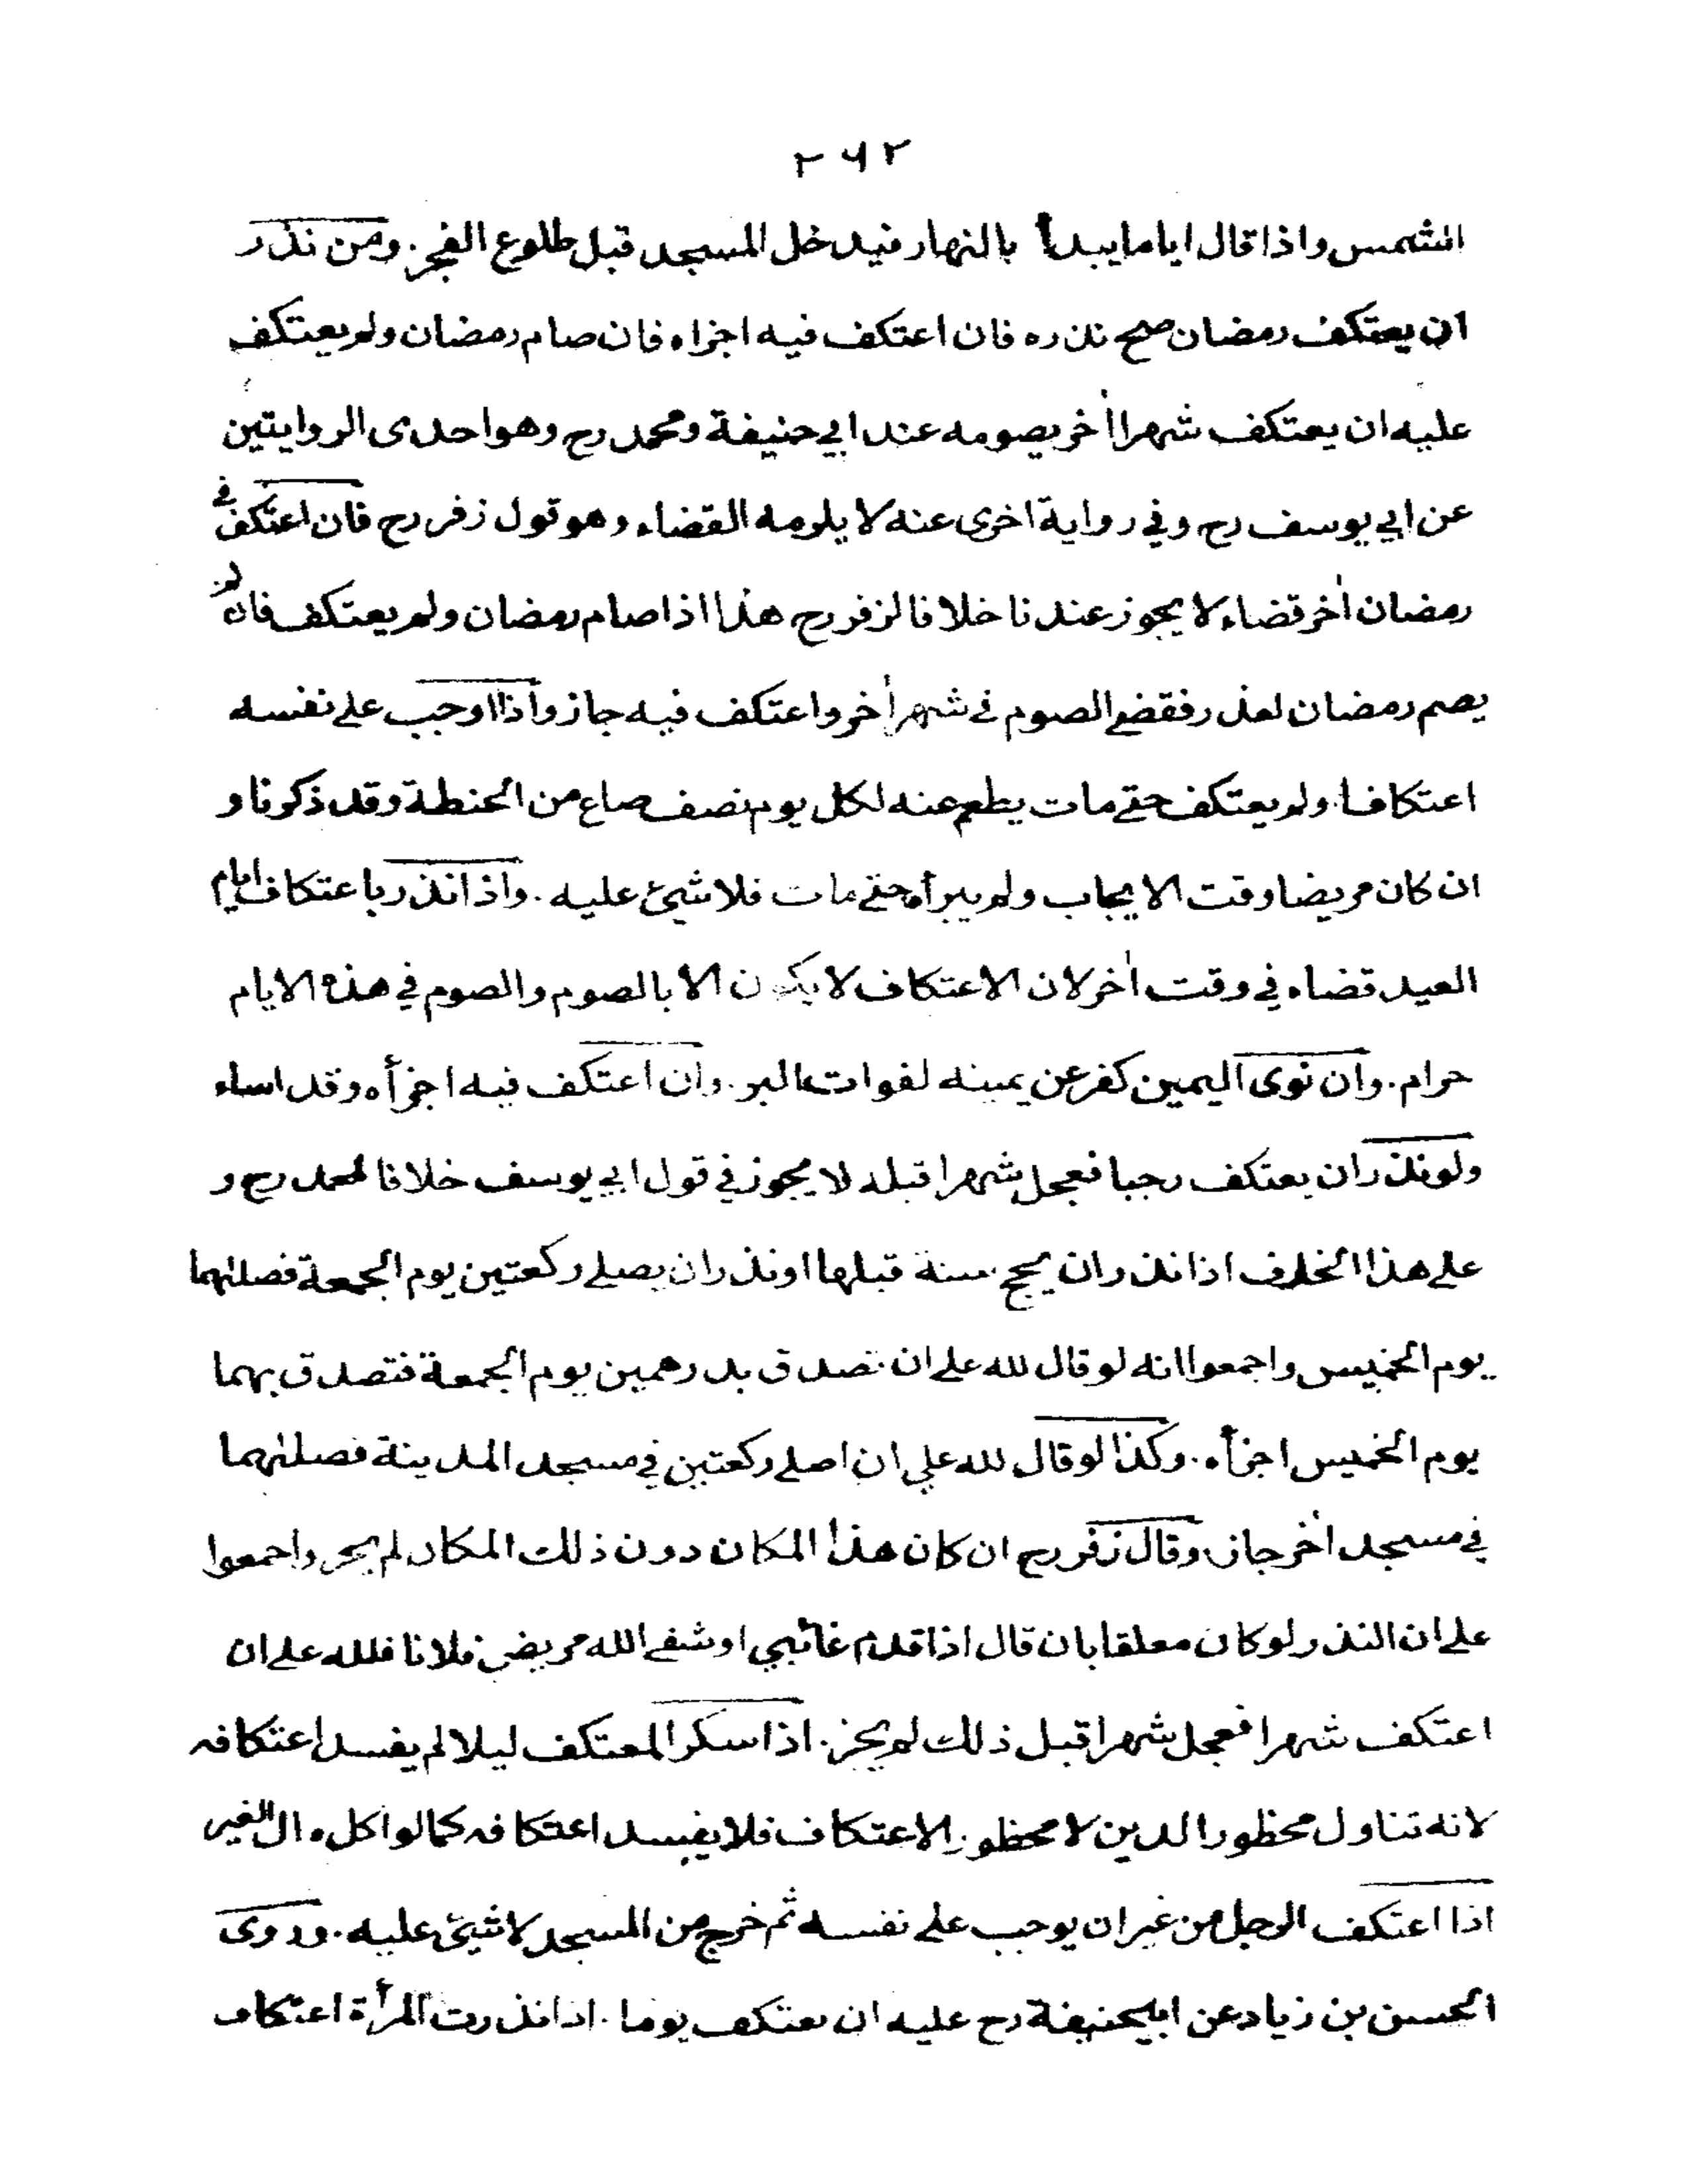 ۲۶۲
الشمس واذا قال اياما يبدأ بالنهار فيدخل المسجد قبل طلوع الفجر. ومن نذر
ان يعتكف رمضان صح نذره فان اعتكف فيه اجزاه فان صام رمضان ولم يعتكف
عليه ان يعتكف شهرا اٰخر يصومه عند ابي حنيفة ومحمد رح وهو احدى الروايتين
عن ابي يوسف رح وفي رواية اخرى عنه لا يلزمه القضاء وهو قول زفر رح فان اعتكف في
رمضان اٰخر قضاء لا يجوز عندنا خلافا لزفر رح هذا اذا صام رمضان ولم يعتكف فان لم
يصم رمضان لعذر فقضى الصوم في شهر اٰخر واعتكف فيه جاز واذا اوجب على نفسه
اعتكافا ولم يعتكف حتى مات يطعم عنه لكل يوم نصف صاع من الحنطة وقد ذكرنا و
ان كان مريضا وقت الايجاب ولم يبرأ حتى مات فلا شيئ عليه. واذا نذر باعتكاف ايام
العيد قضاه في وقت اٰخر لان الاعتكاف لا يكون الا بالصوم والصوم في هذه الايام
حرام. وان نوى اليمين كفر عن يمينه لفوات البر. وان اعتكف فيه اجزأه وقد اساء
ولو نذر ان يعتكف رجبا فعجل شهرا قبله لا يجوز في قول ابي يوسف خلافا لمحمد رح و
على هذا الخلاف اذا نذر ان يحج سنة قبلها او نذر ان يصلى ركعتين يوم الجمعة فصلٰهما
يوم الخميس واجمعوا انه لو قال لله على ان تصدق بدرهمين يوم الجمعة فتصدق بهما
يوم الخميس اجزأه. وكذا لو قال لله علي ان اصلى ركعتين في مسجد المدينة فصلٰهما
في مسجد اٰخر جاز. وقال زفر رح ان كان هذا المكان دون ذلك المكان لم يجز واجمعوا
على ان النذر لو كان معلقا بان قال اذا قدم غائبي او شفى الله مريضي فلانا فلله على ان
اعتكف شهرا فعجل شهرا قبل ذلك لم يجز. اذا سكر المعتكف ليلا لم يفسد اعتكافه
لانه تناول محظور الدين لا محظور الاعتكاف فلا يفسد اعتكافه كما لو اكل مال الغير
اذا اعتكف الرجل من غير ان يوجب على نفسه ثم خرج من المسجد لا شيئ عليه. وروى
الحسن بن زياد عن ابيحنيفة رح عليه ان يعتكف يوما. اذا نذرت المرأة اعتكاف